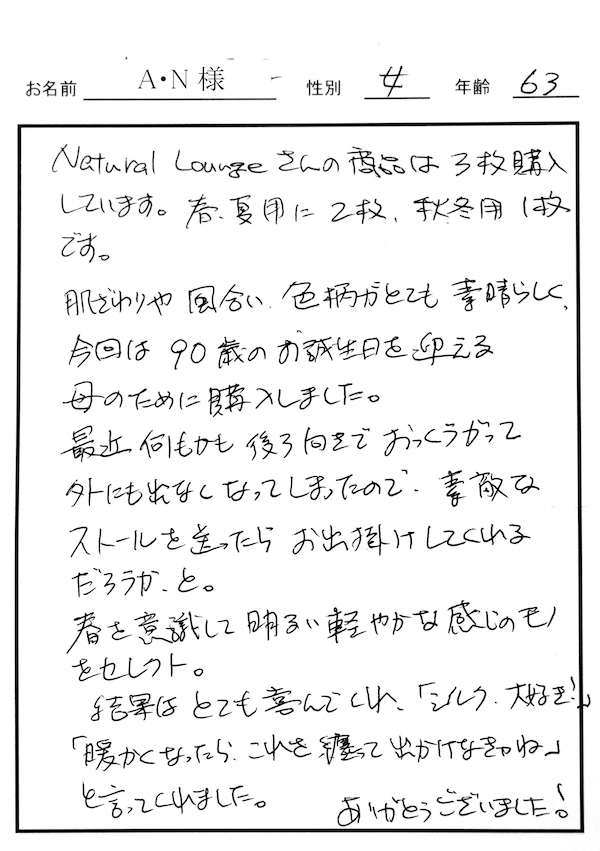 お名前 A・N様 性別 女 年齢 63
Natural Loungeさんの商品は3枚購入
しています。春、夏用に2枚、秋冬用1枚
です。
肌ざわりや風合い、色柄がとても素晴らしく、
今回は90歳のお誕生日を迎える
母のために購入しました。
最近何もかも後ろ向きでおっくうがって
外にも出なくなってしまったので、素敵な
ストールを送ったらお出掛けしてくれる
だろうか、と。
春を意識して明るい軽やかな感じのモノ
をセレクト。
結果はとても喜んでくれ、「シルク、大好き!」
「暖かくなったら、これを纏って出かけなきゃね」
と言ってくれました。
ありがとうございました!